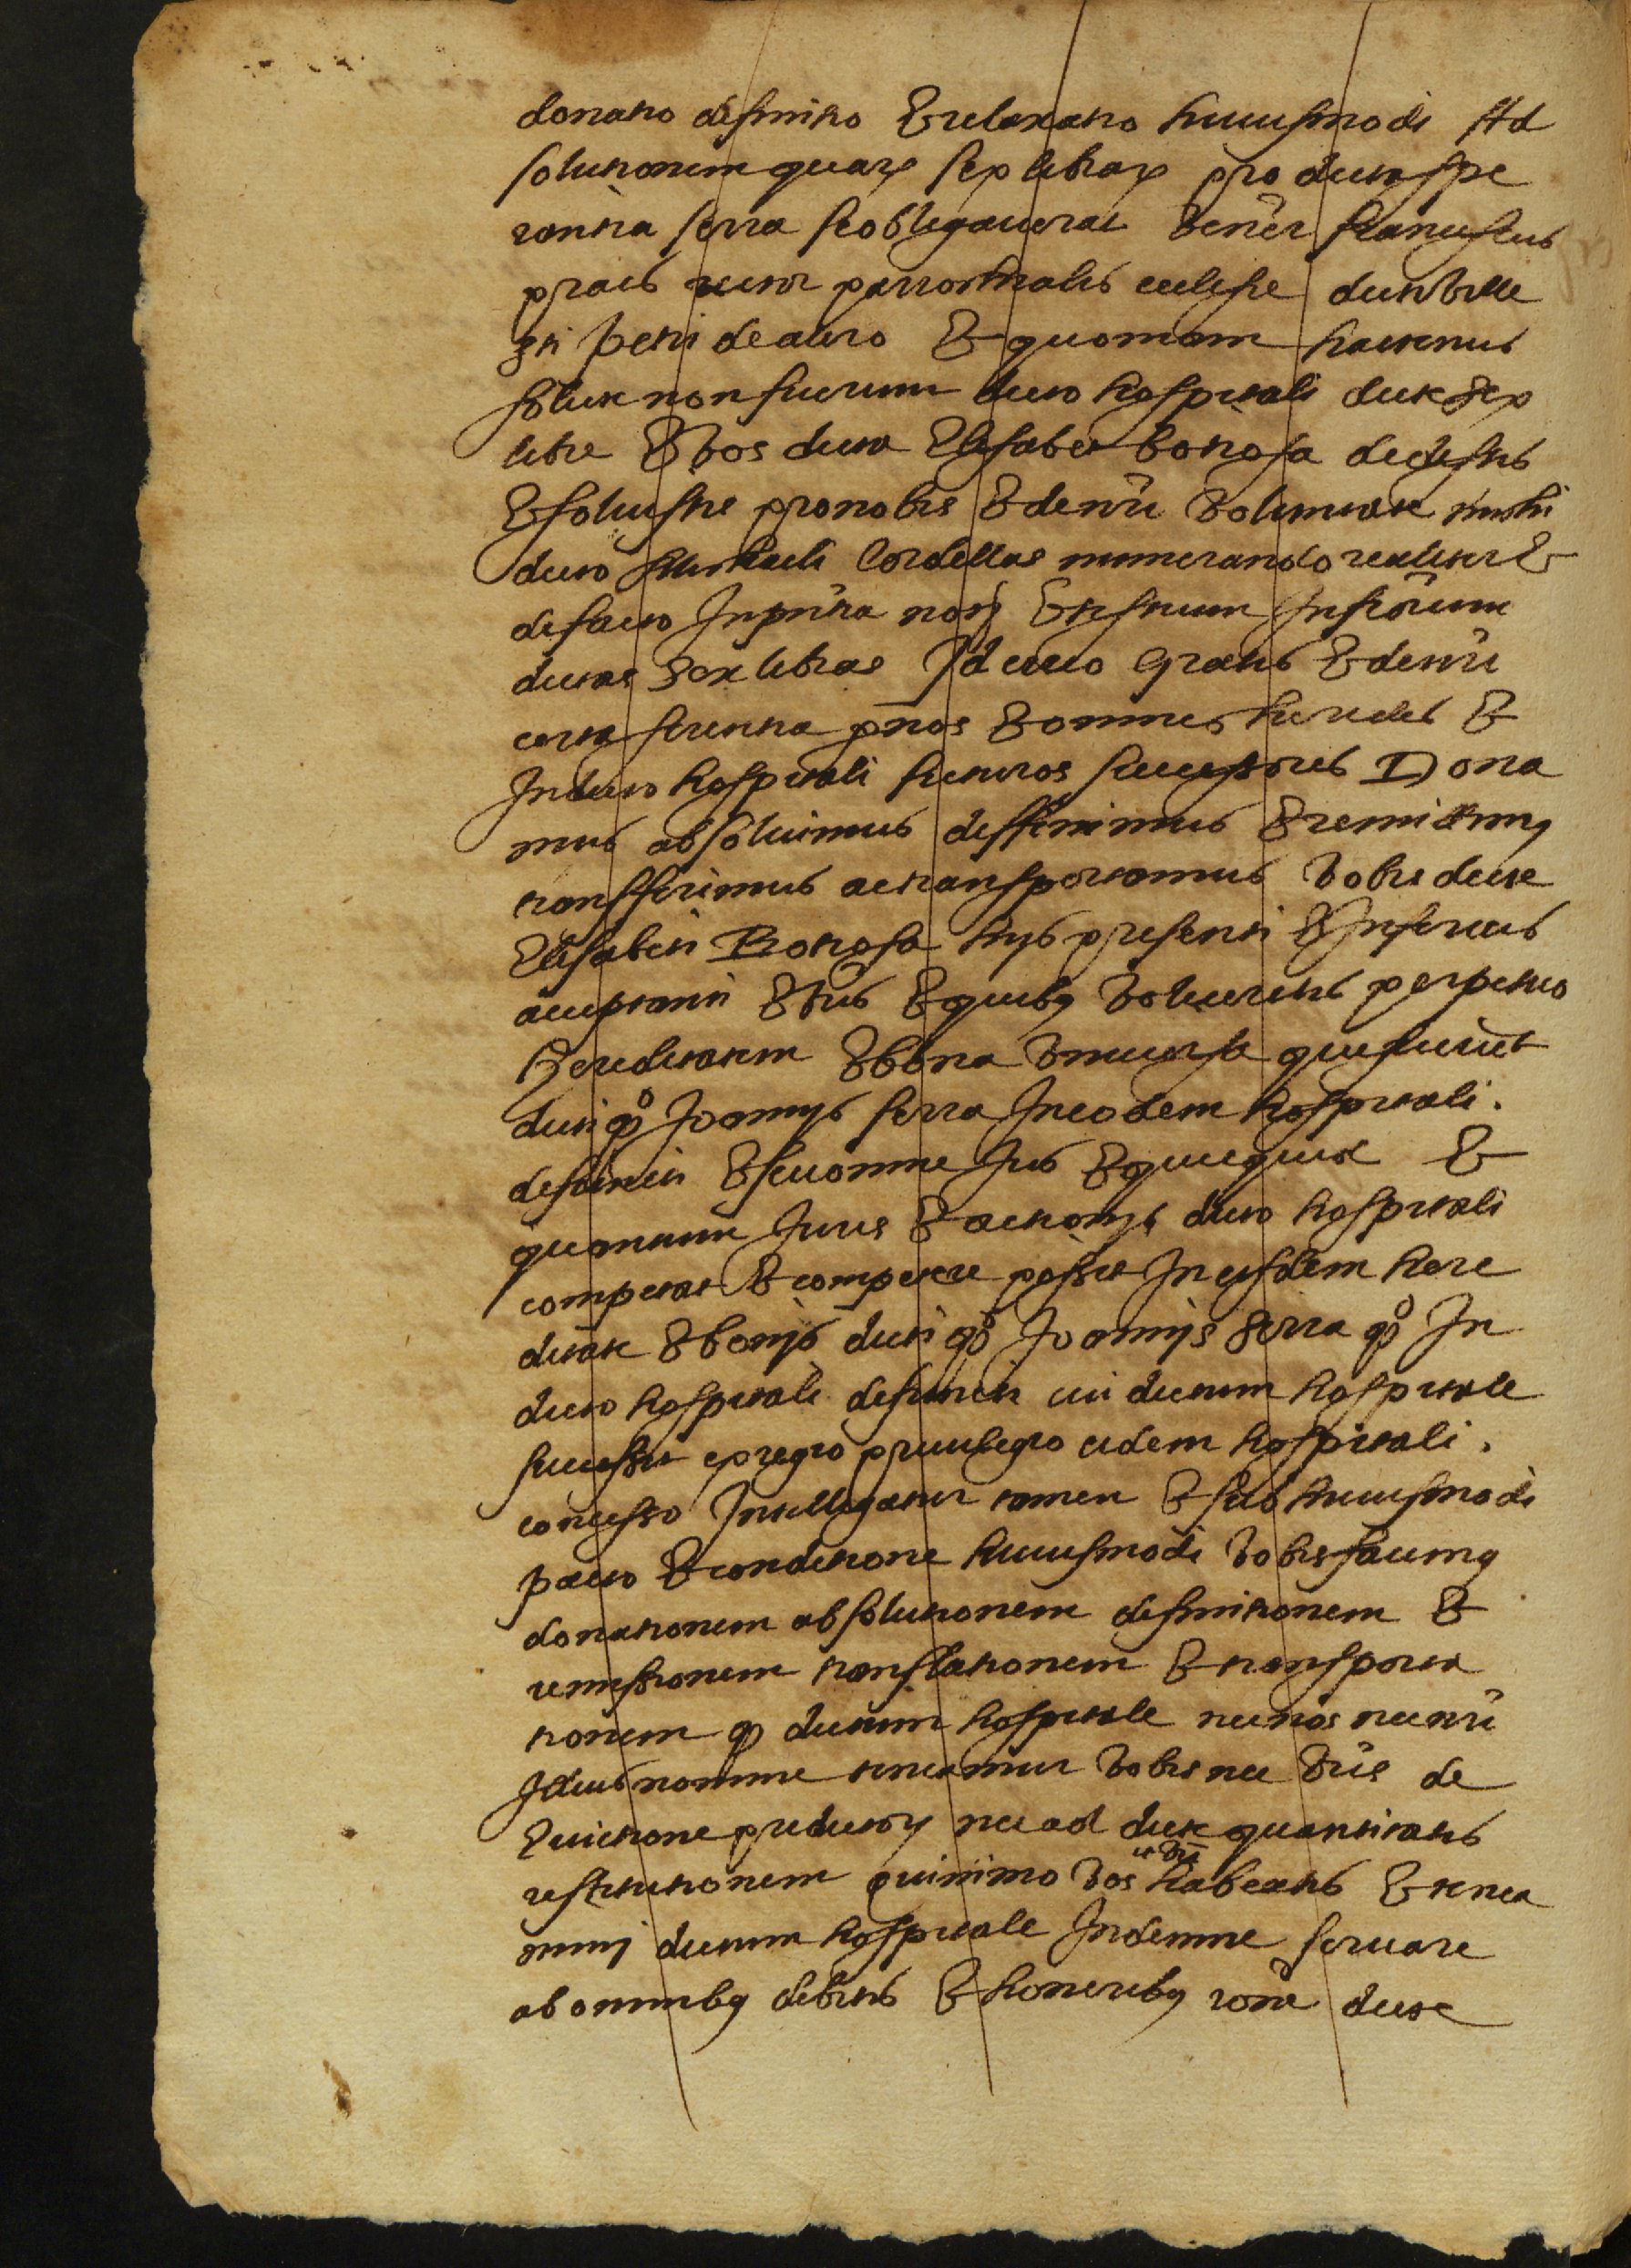 donatio definitio & relaxatio huiusmodi Ad
solutionem quarꝫ sex librarꝫ pro dicta Spe
rontia Serra se obligauerat Vener Franciscus
prats rector parrochialis eclesie dicti ville
sti petri de auro & quoniam hactenus
solute non fuerunt dicto hospitali dicte sex
libre & vos dicta Elisabet botiosa dedistis
& soluistis pro nobis & de nri voluntate mihi
dicto Michaeli Cordelles numerando realiter &
de facto In pntia norj & testium Infrorum
dictas sex libras Id circo Gratis & de nri
certa scientia p nos & omnes heredes &
In dicto hospitali futuros successores Dona
mus absoluimus deffinimus & remittimq
transfferimus ac transportamus vobis dicte
Elisabeti Botiosa hijs presenti & Inferius
acceptanti & vris & quibq volueritis perpetuo
Hereditatem & bona vniuersa que fuerut
dicti qº Joannis Serra In eodem hospitali .
defuncti & seu omne Jus & quicquid &
quantum Juris & actionis dicto hospitali
competat & competere possit In eisdem here
ditate & bonis dicti qº Joannis Serra qº In
dicto hospitali defuncti cui dictum hospitale
successit ex regio priuilegio eidem hospitali .
concesso Intelligatur tamen & sub huiusmodi
pacto & conditione huiusmodi vobis facimq
donationem absolutionem definitionem &
remissionem translationem & transporta
tionem q dictum hospitale nec nos nec nri
Illius nomine teneamur vobis nec vris de
Euictione predictorꝫ nec ad dicte quantitatis
restitutionem quinimo vos et vri habeatis & tenea
minj dictum hospitale Indemne seruare
ab omnibq debitis & honeribq rone dicte